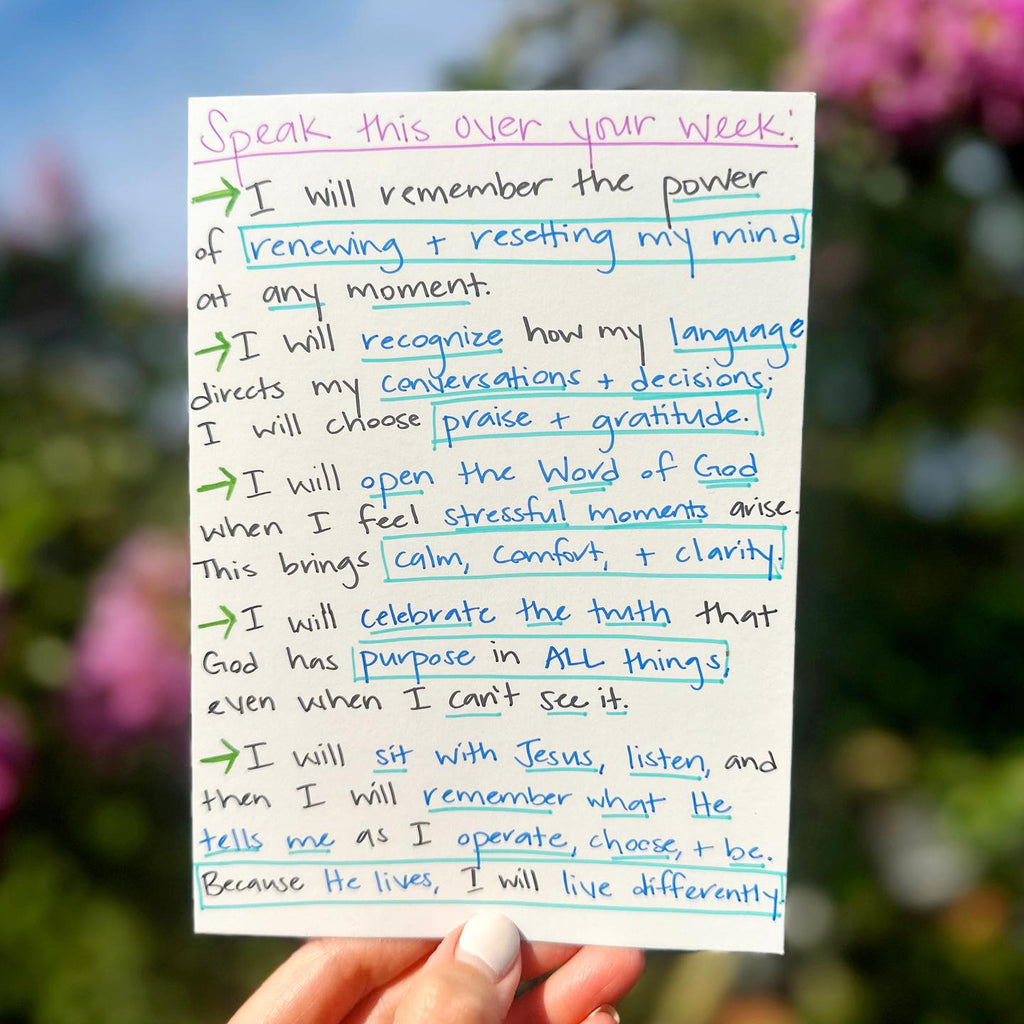 Speak this over your week:
→ I will remember the power
of renewing + resetting my mind
at any moment.
→ I will recognize how my language
directs my conversations + decisions;
I will choose praise + gratitude.
→ I will open the Word of God
when I feel stressful moments arise.
This brings calm, comfort, + clarity.
→ I will celebrate the truth that
God has purpose in ALL things,
even when I can't see it.
→ I will sit with Jesus, listen, and
then I will remember what He
tells me as I operate, choose, + be.
Because He lives, I will live differently.